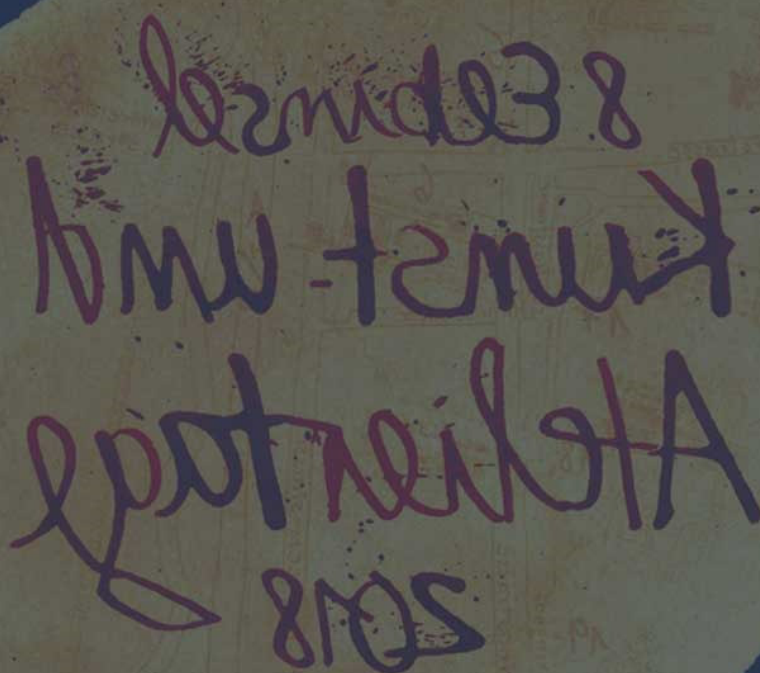 8. Elbinsel
Kunst- und
Ateliertag
2018